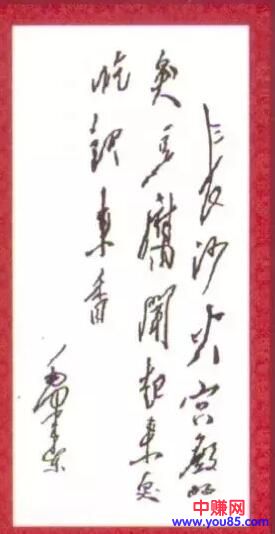 长沙火宫殿的
臭豆腐聞起来臭
吃起来香
毛泽东
中赚网
www.you85.com